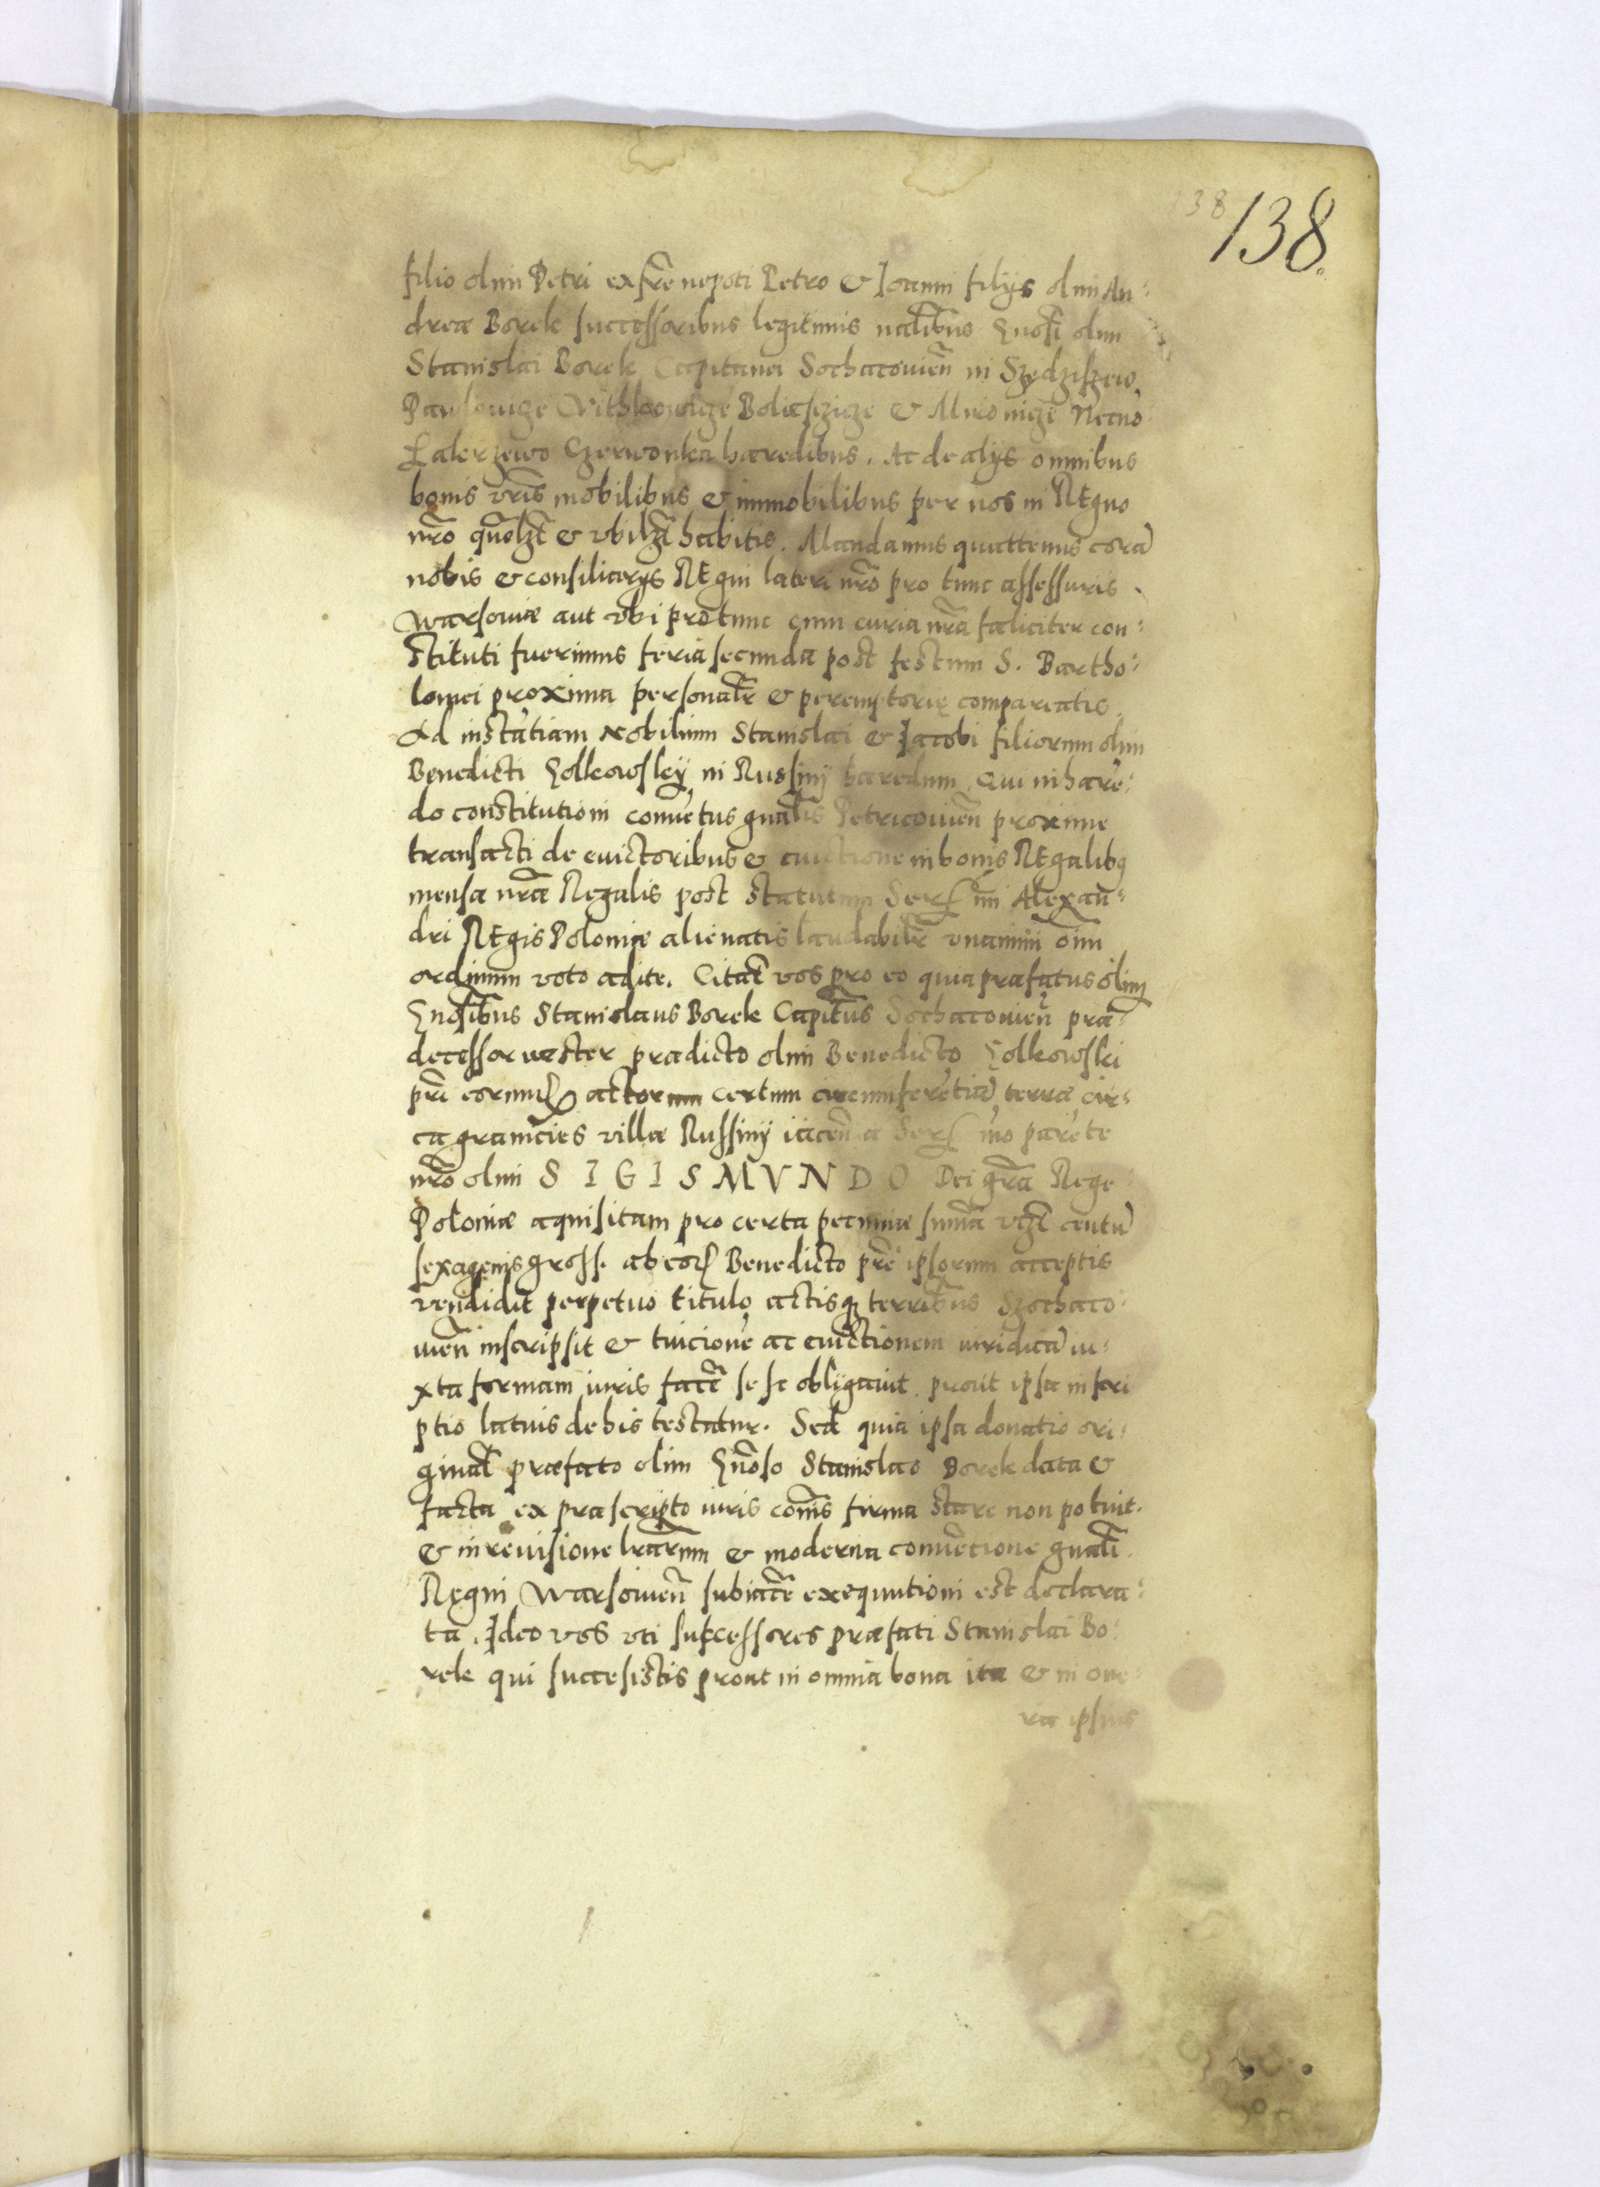 138
138.
filio olim Petri ex fr̃e nepoti Petro & Ioanni filijs olim An:
dreæ Borek successoribus legitimis nãlibus Gnosi olim
Stanislai Borek Capitanei Sochacouien̄ in Szydziszew
Pawlowicze Withkowicze & Mironicze Necno
Łakerzewo Czerwonka hæredibus. Ac de alijs omnibus
bonis vr̃is mobilibus & immobilibus per uos in REgno
nr̃o quolz̃t & vbilz̃t habitis. Mandamus quattenus corã
nobis & consiliarijs REgni lateri nr̃o pro tunc assessuris.
Warsouiæ aut vbi pro tunc cum curia nr̃a fæliciter con:
stituti fuerimus feria secunda post festum S. Bartho:
lomei proxima personalr̃ & peremptorie compareatis
Ad instãtiam Nobilium Stanislai & Iacobi filiorum olim
Benedicti Zolkowsky in Russiny hæredum. Qui inhæré:
do constitutioni conuẽtus gnãlis Petricouien̄ proxime
transacti de euictoribus & euictione in bonis REgalibq
mensa nr̃a Regalis post statutum Serʃ mi Alexan̄:
dri REgis Poloniæ alienatis laudabilr̃ vnanimi oĩm
ordinum voto adite. Citat̃ vos pro eo quia præfatus olim
Gnosĩbus Stanislaus Borek Capit̃us Sochacouien̄ præ:
decessor uester prædicto olim Benedicto Zolkowski
pr̃i eorundʒ actorum certum circumferẽtiã terræ cir:
ca granicies villæ Russiny iacen̄ a Serʃ mo parẽte
nr̃o olim S I G I S M V N D O Dei gr̃a Rege
Poloniæ aquisitam pro certa pecuniæ sum̃a vz̃t centũ
sexagenis gross. ab eodʒ Benedicto pr̃e ipsorum acceptis
vendidit perpetuo titulo actisqʒ terr̃ibus Szochaco:
uien̄ inscripsit & tuicionẽ ac euictionem iuridicã iu:
xta formam iuris facẽ se se obligauit prout ipsa inscri
ptio latius de his testatur. Sed quia ipsa donatio ori:
ginal̃ præfato olim Gnõso Stanislao Borek data &
facta ex præscripto iuris com̃is firma stare non potuit.
& in reuisione lr̃arum & moderna conuẽtione gnal̃i
Regni Warsouien̄ subiacẽ exequutioni est declara:
ta. Ideo vos vti successores præfati Stanislai Bo:
rek qui successistis prout in omnia bona ita & in one:
ra ipsius